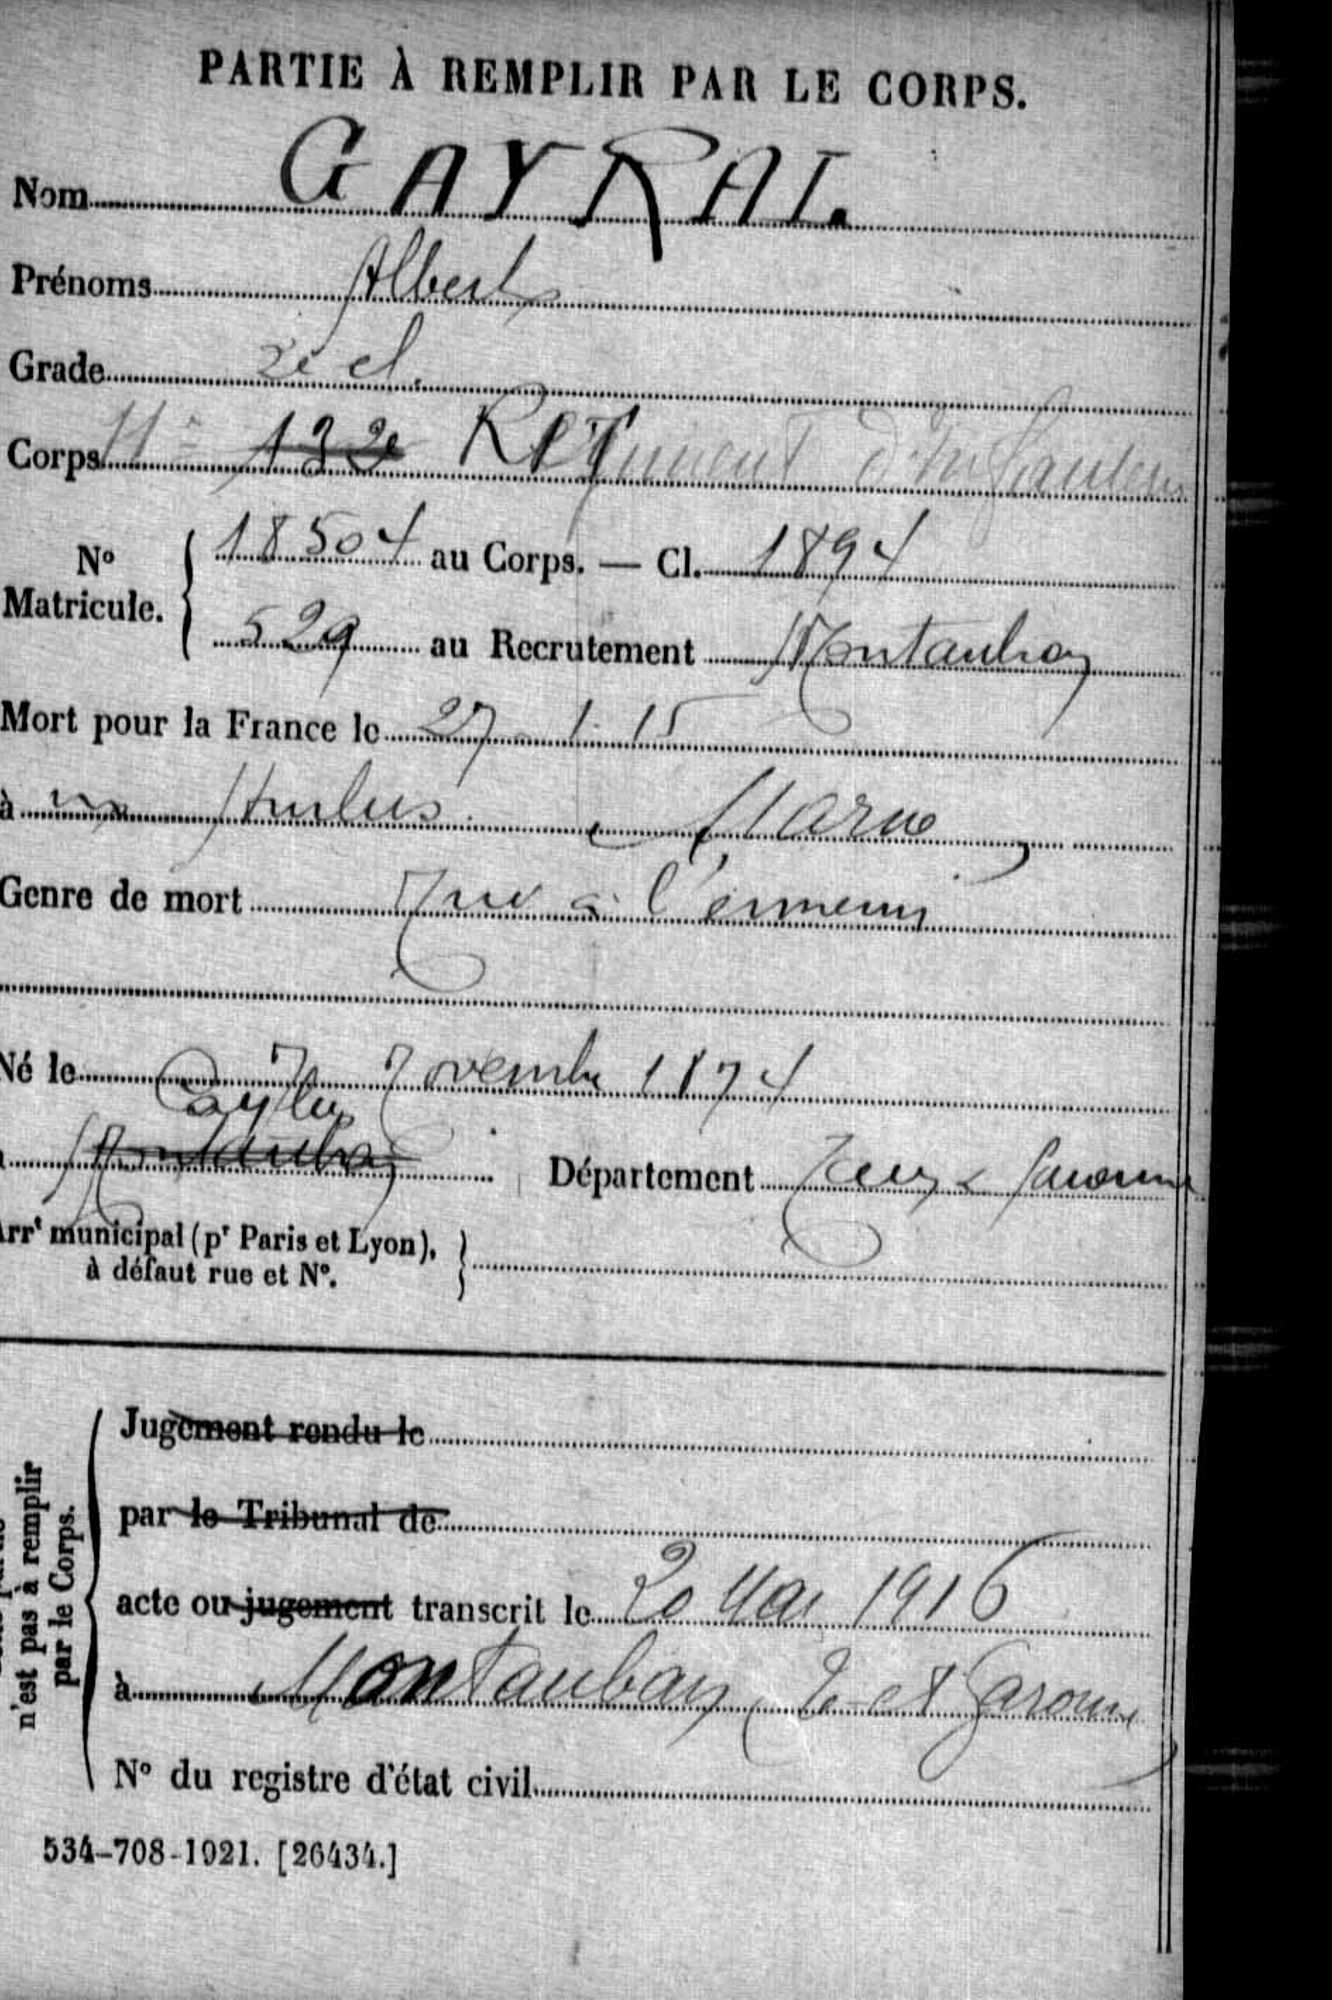 PARTIE À REMPLIR PAR LE CORPS.
Nom GAYRAL
Prénoms Albert
Grade 2e cl.
Corps 11e 132e RIT Régiment d'Infanterie
No Matricule. { 18504 au Corps. — Cl. 1894
529 au Recrutement Montauban
Mort pour la France le 27 - 1. 15
à Hurlus Marne
Genre de mort Tué à l'ennemi
Né le 7 Novembre 1874
Caylus
Montauban Département Tarn & Garonne
Arrt municipal (pr Paris et Lyon),
à défaut rue et No.
Jugement rendu le
par le Tribunal de
acte ou jugement transcrit le 20 Mai 1916
à Montauban T-et-Garonne
No du registre d'état civil
n'est pas à remplir
par le Corps.
534-708-1921. [26434.]